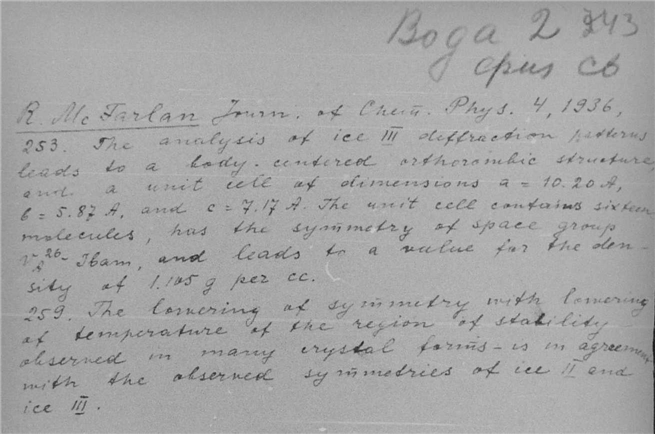 Вода 2 243
крис св
R. McFarlan Journ. of Chem. Phys. 4, 1936,
253. The analysis of ice III diffraction patterns
leads to a body-centered orthorombic structure,
and a unit cell of dimensions a = 10.20 A,
b = 5.87 A, and c = 7.17 A. The unit cell contains sixteen
molecules, has the symmetry of space group
Ibam, and leads to a value for the den-
sity of 1.105 g per cc.
259. The lowering of symmetry with lowering
of temperature of the region of stability
observed in many crystal forms - is in agreement
with the observed symmetries of ice II and
ice III.